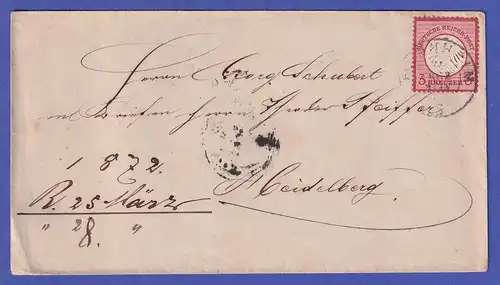 DEUTSCHE REICHS-POST
3 KREUZER 3
Herrn Georg Schubert
Briefen Herrn Theodor Pfeiffer
Heidelberg.
1872.
R. 25 März
" 28. "